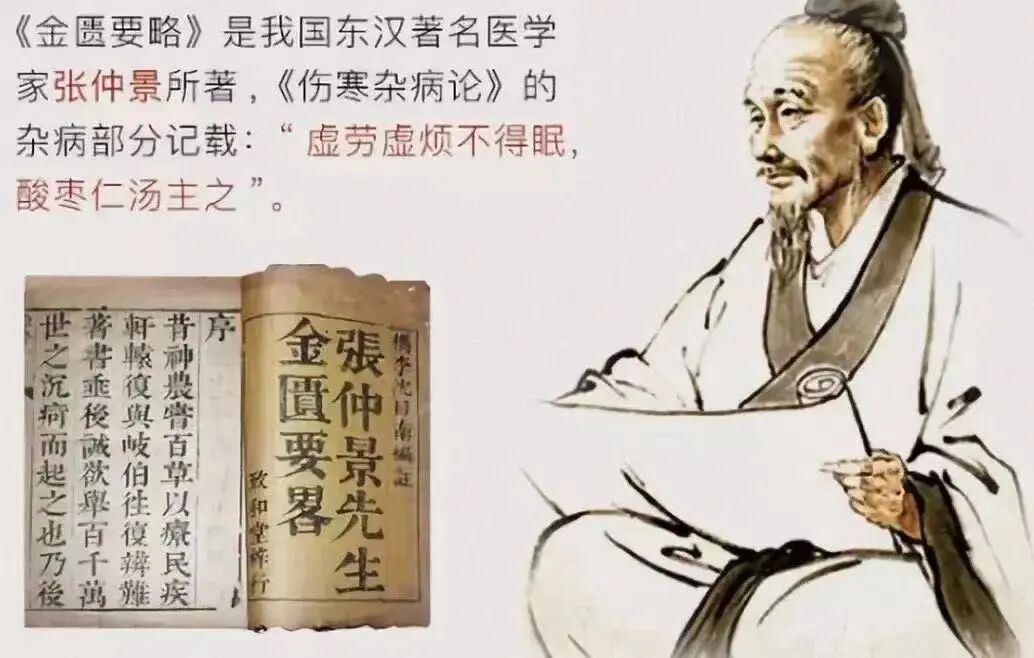 《金匮要略》是我国东汉著名医学
家张仲景所著,《伤寒杂病论》的
杂病部分记载:“虚劳虚烦不得眠,
酸枣仁汤主之”。
檇李沈目南編註
張仲景先生
金匱要畧
致和堂梓行
序
昔神農嘗百草以療民疾
軒轅復與岐伯徃復辨難
著書垂後誠欲舉百千萬
世之沉疴而起之也乃後